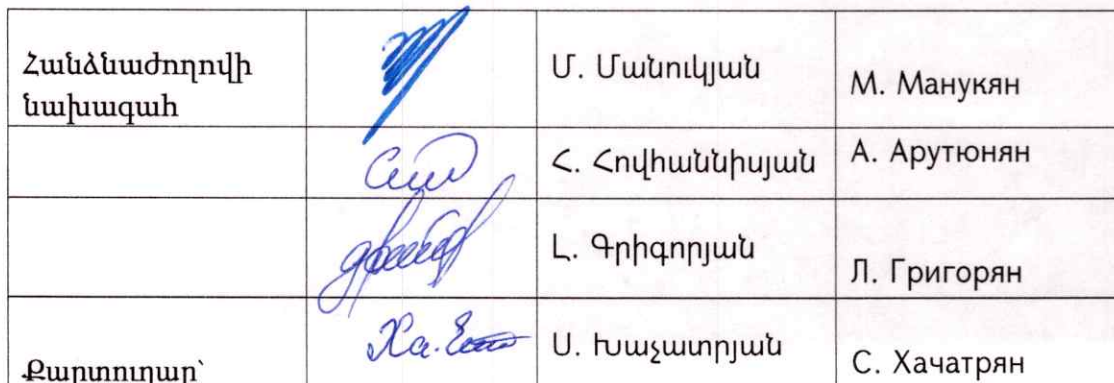 Հանձնաժողովի
նախագահ
Մ. Մանուկյան
М. Манукян
Հ. Հովհաննիսյան
А. Арутюнян
Լ. Գրիգորյան
Л. Григорян
Քարտուղար՝
Ս. Խաչատրյան
С. Хачатрян